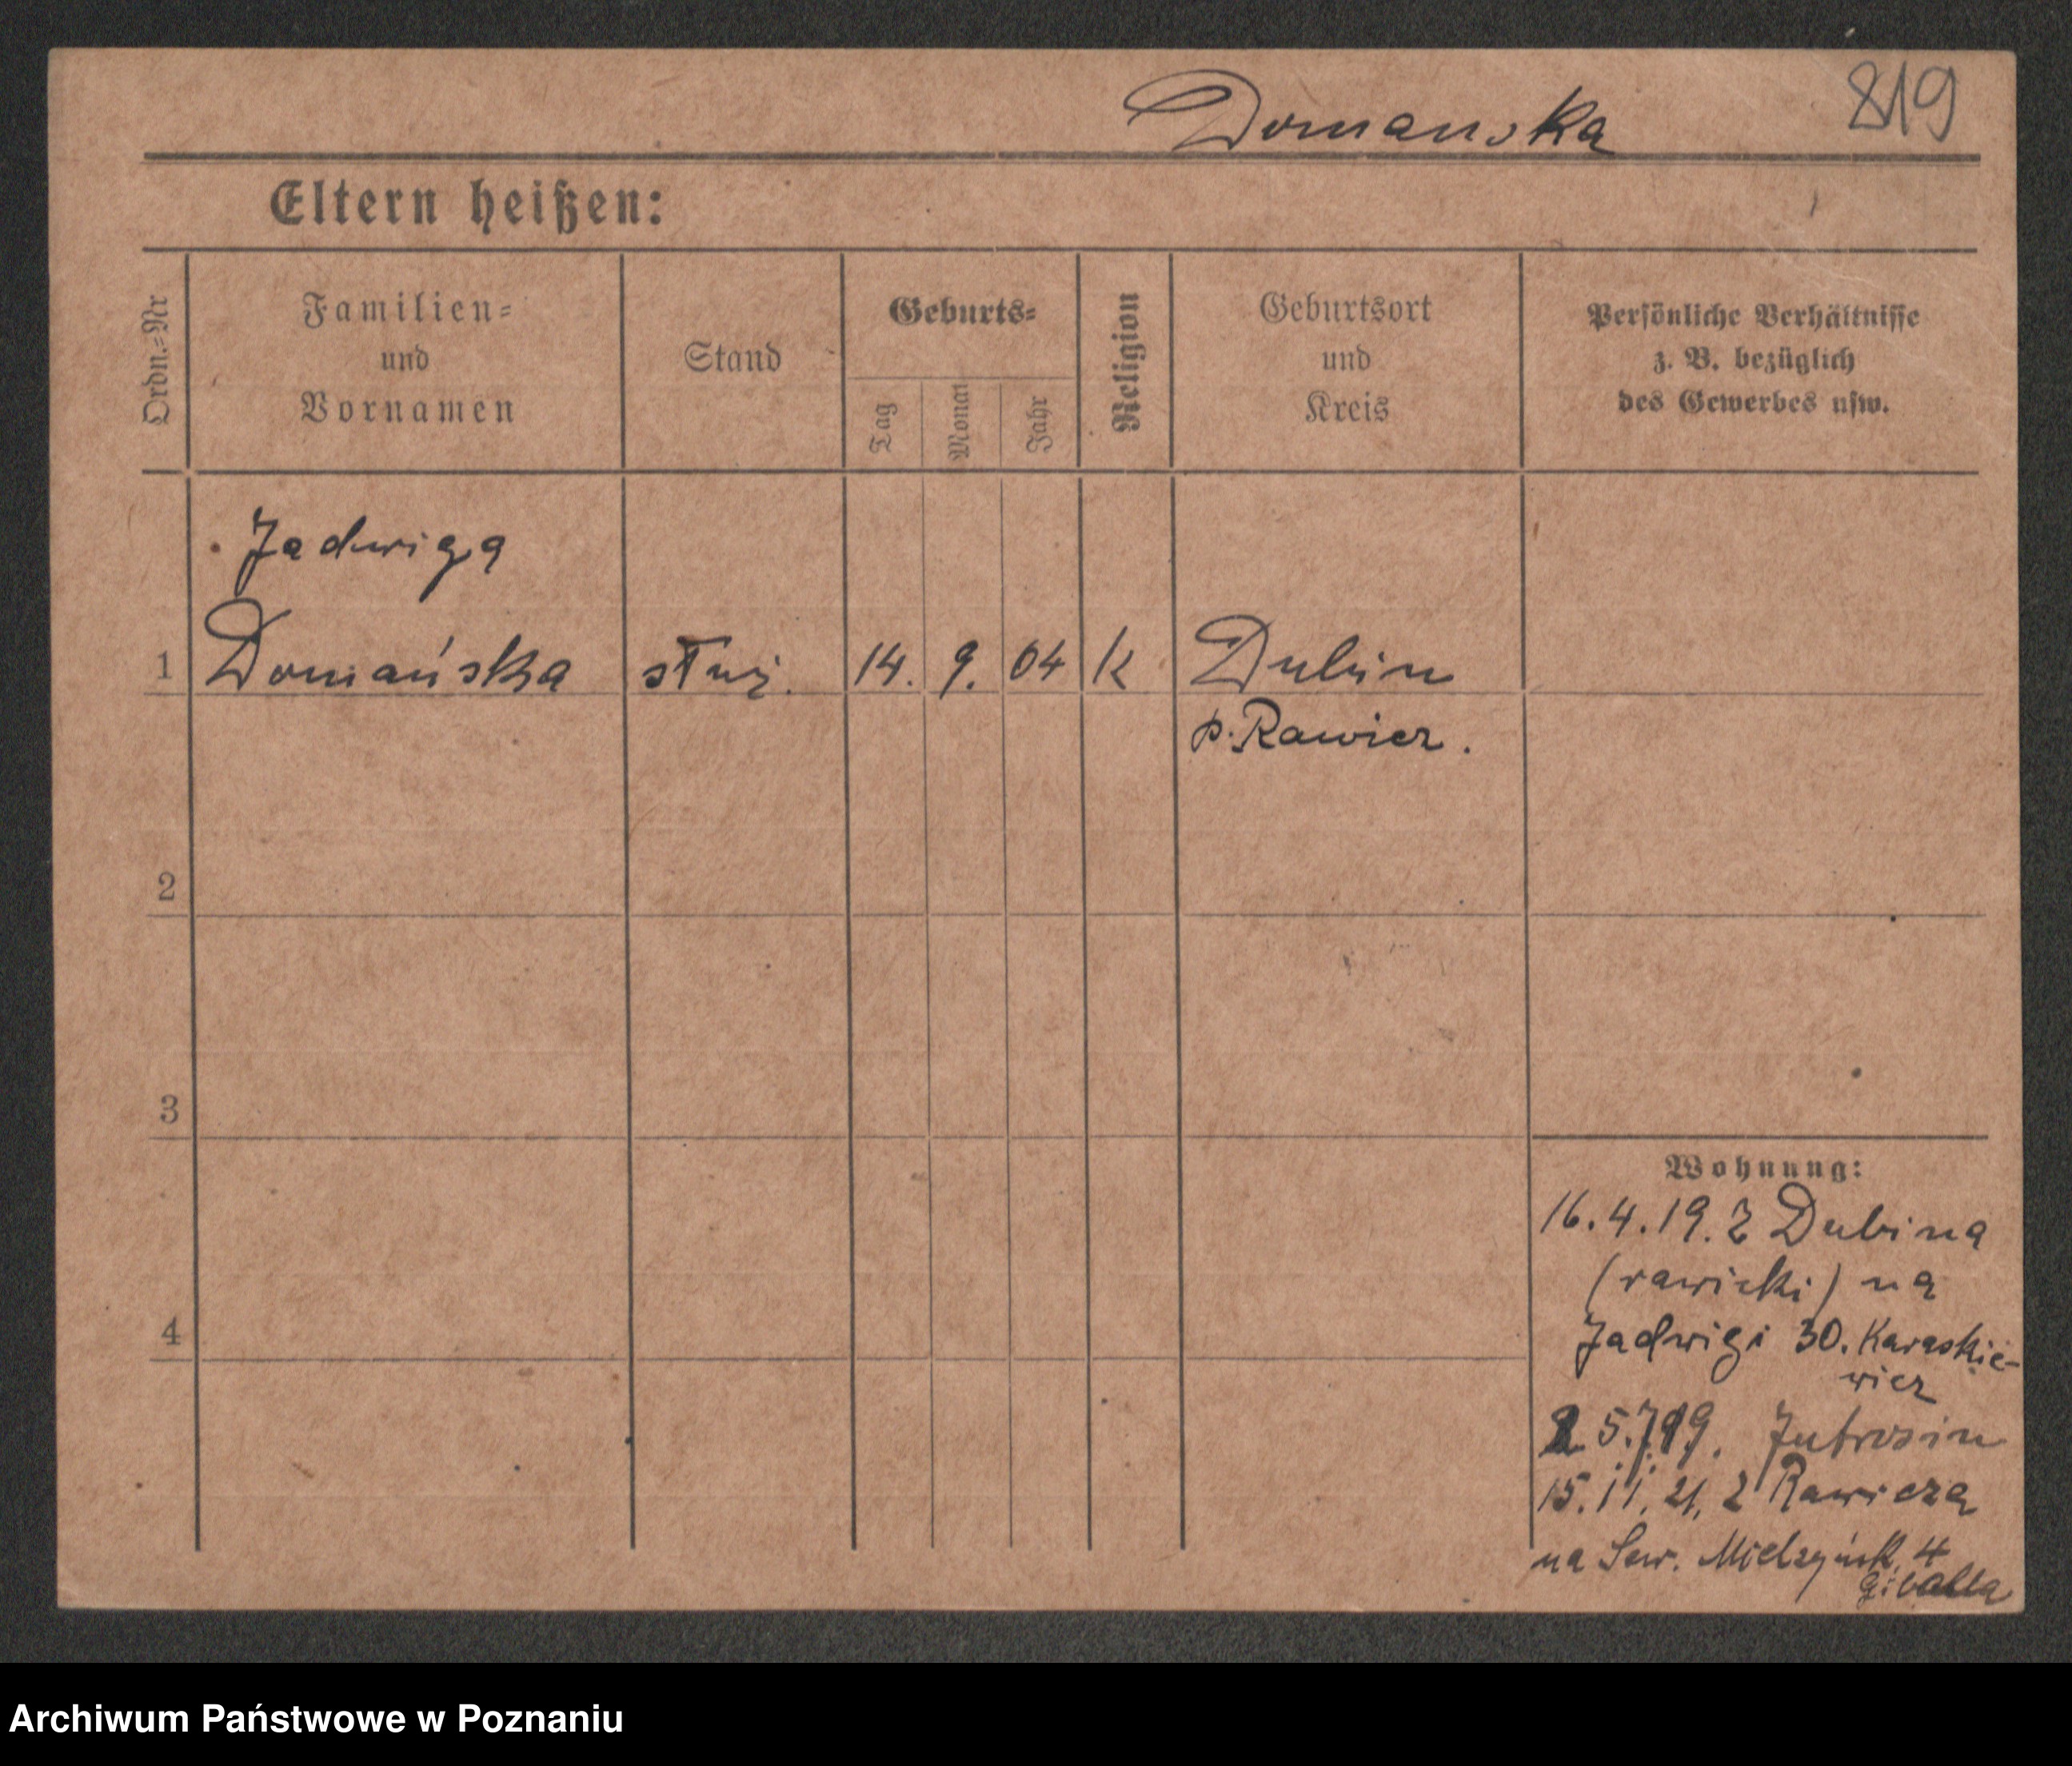 Domanska
819
Eltern heißen:
Ordn.-Nr
Familien-
und
Vornamen
Stand
Geburts-
Tag
Monat
Jahr
Religion
Geburtsort
und
Kreis
Persönliche Verhältnisse
z. B. bezüglich
des Gewerbes usw.
Jadwiga
1 Domańska służ. 14. 9. 04 K Dubin
p. Rawicz.
2
3
4
Wohnung:
16.4.19. z Dubina
(rawicki) na
Jadwigi 30. Karaskie-
wicz
5.7.19. Jutrosin
15.11.21. z Rawicza
na Sew. Mielzyńsk. 4
Archiwum Państwowe w Poznaniu